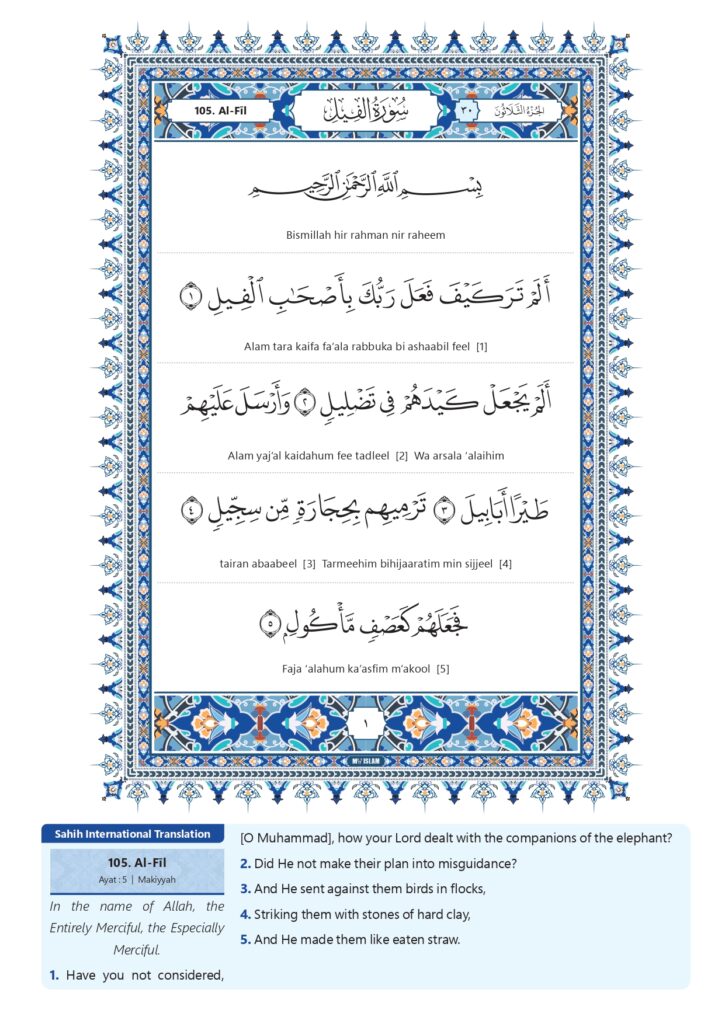 105. Al-Fīl
سُورَةُ الْفِيلِ
٣٠
الجُزْءُ الثَّلَاثُونَ
بِسْمِ اللَّهِ الرَّحْمَٰنِ الرَّحِيمِ
Bismillah hir rahman nir raheem
أَلَمْ تَرَ كَيْفَ فَعَلَ رَبُّكَ بِأَصْحَابِ الْفِيلِ ١
Alam tara kaifa fa’ala rabbuka bi ashaabil feel [1]
أَلَمْ يَجْعَلْ كَيْدَهُمْ فِي تَضْلِيلٍ ٢ وَأَرْسَلَ عَلَيْهِمْ
Alam yaj’al kaidahum fee tadleel [2] Wa arsala ‘alaihim
طَيْرًا أَبَابِيلَ ٣ تَرْمِيهِم بِحِجَارَةٍ مِّن سِجِّيلٍ ٤
tairan abaabeel [3] Tarmeehim bihijaaratim min sijjeel [4]
فَجَعَلَهُمْ كَعَصْفٍ مَّأْكُولٍ ٥
Faja ‘alahum ka’asfim m’akool [5]
١
MY ISLAM
Sahih International Translation
105. Al-Fīl
Ayat : 5 | Makiyyah
In the name of Allah, the
Entirely Merciful, the Especially
Merciful.
1. Have you not considered,
[O Muhammad], how your Lord dealt with the companions of the elephant?
2. Did He not make their plan into misguidance?
3. And He sent against them birds in flocks,
4. Striking them with stones of hard clay,
5. And He made them like eaten straw.